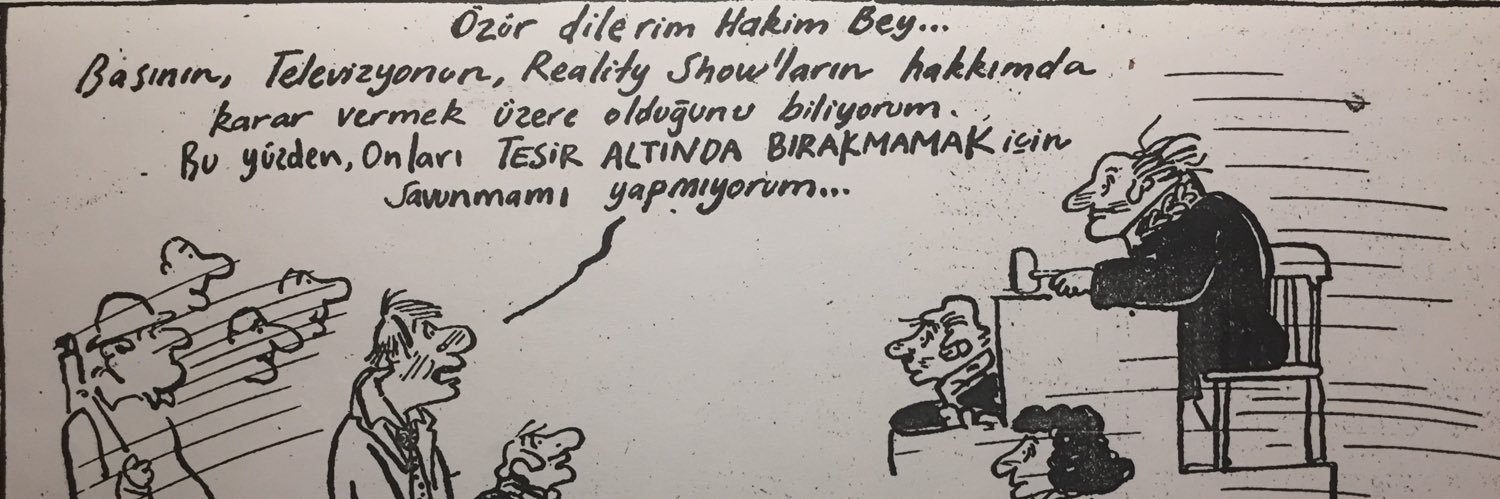 Özür dilerim Hakim Bey...
Basının, Televizyonun, Reality Show'ların hakkımda
karar vermek üzere olduğunu biliyorum.
Bu yüzden, Onları TESİR ALTINDA BIRAKMAMAK için
savunmamı yapmıyorum...